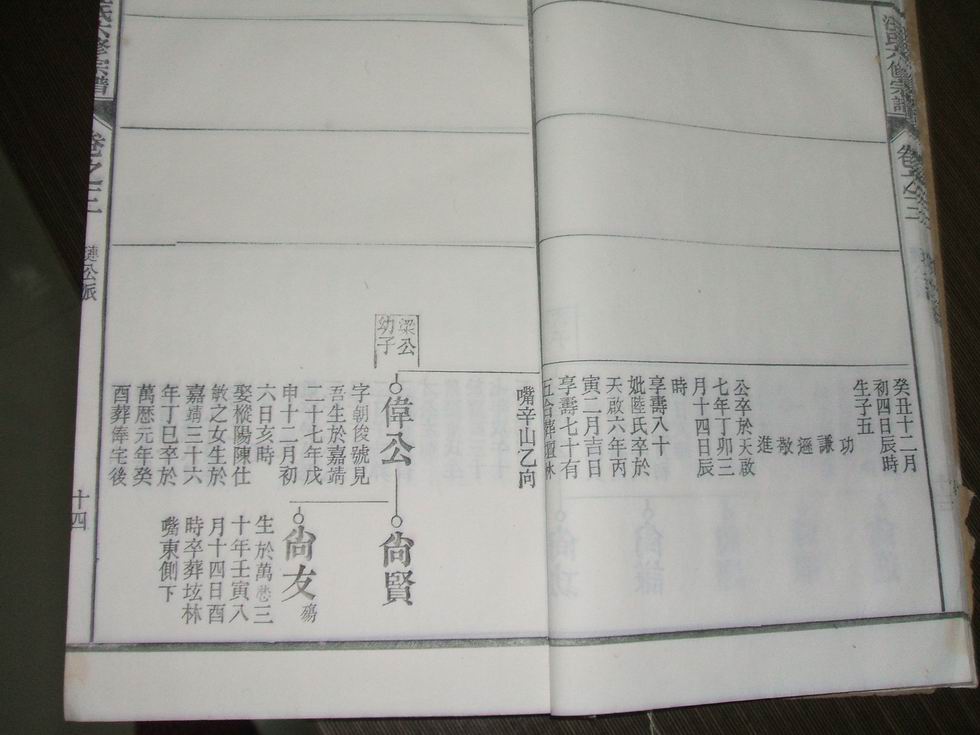 癸丑十二月
初四日辰時
生子五
功
謙
遜
敬
進
公卒於天啟
七年丁卯三
月十四日辰
時
享壽八十
妣陸氏卒於
天啟六年丙
寅二月吉日
享壽七十有
五合葬壇林
嘴辛山乙向
梁公
幼子
偉公
字朝俊號見
吾生於嘉靖
二十七年戊
申十二月初
六日亥時
娶樅陽陳仕
敏之女生於
嘉靖三十六
年丁巳卒於
萬歷元年癸
酉葬俸宅後
尙賢
尙友
殤
生於萬歷三
十年壬寅八
月十四日酉
時卒葬坛林
嘴東側下
修宗譜
卷之三
璉公派
十四